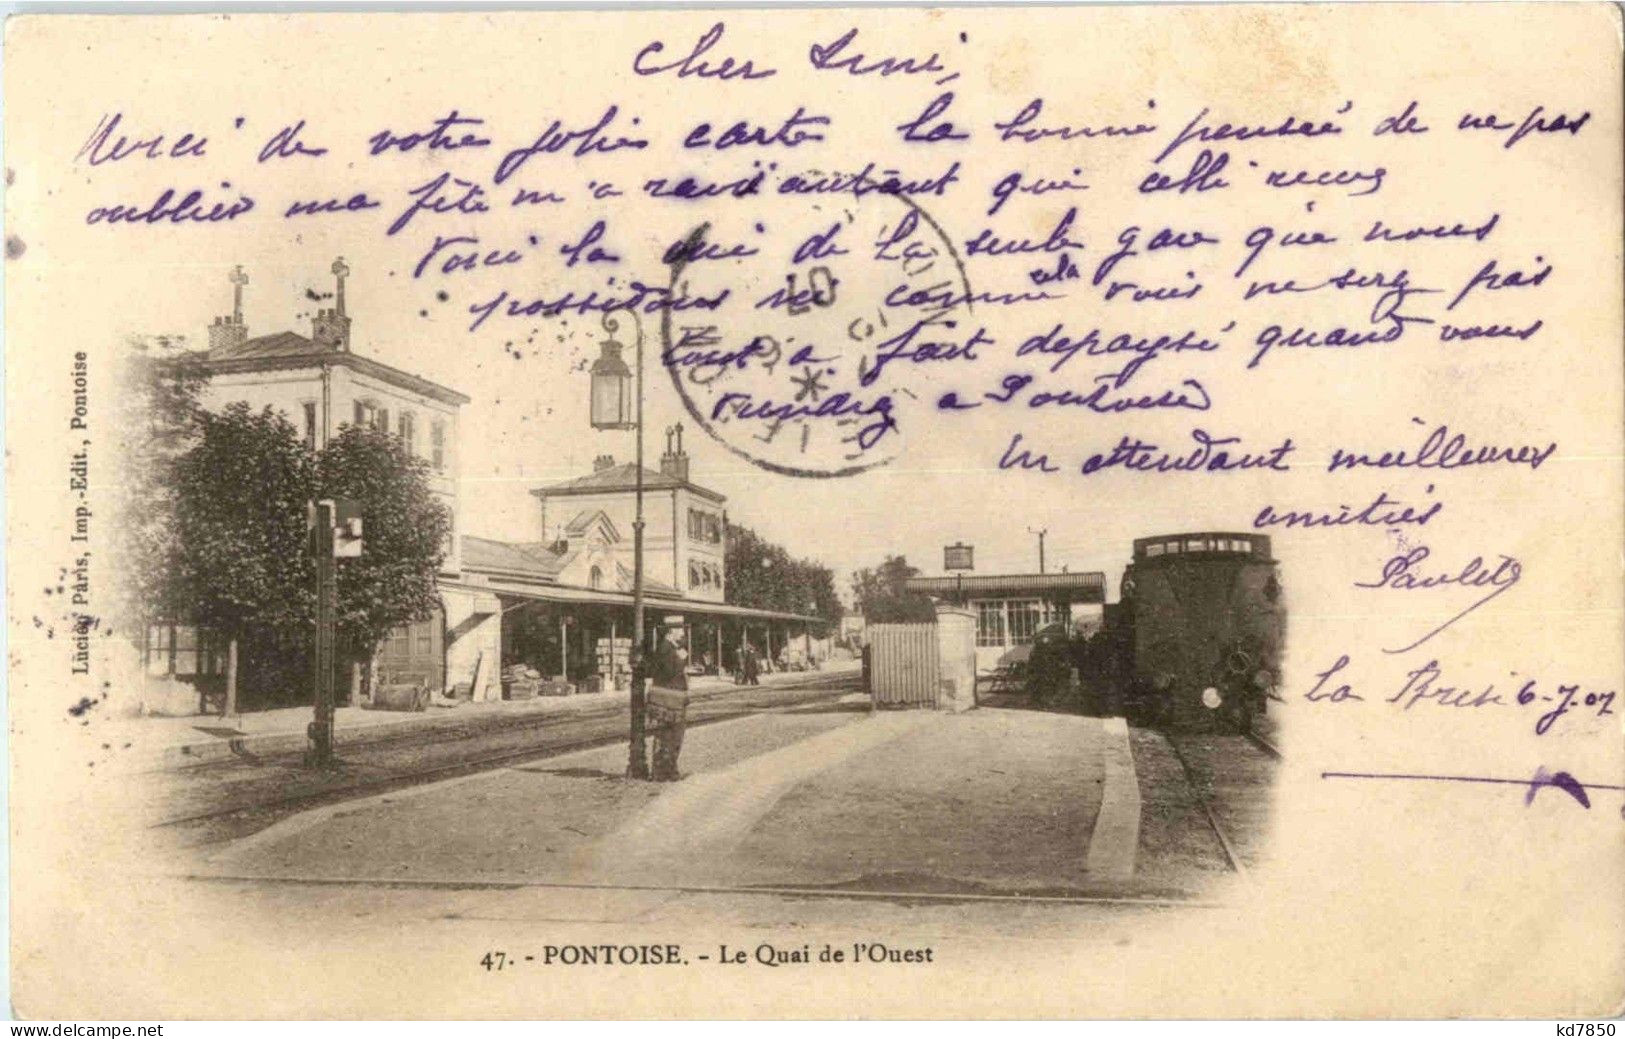 Cher
Merci de votre jolie carte la bonne pensée de ne pas
oublier ma fête m'a ravie autant que celle reçue
Voici la vue de la seule gare que nous
possédons comme cela vous ne serez pas
tout à fait depaysé quand vous
viendrez a Pontoise
En attendant meilleures
amitiés
Paulette
La 6-7-07
Lucien Paris, Imp.-Edit., Pontoise
47. - PONTOISE. - Le Quai de l'Ouest
www.delcampe.net
kd7850